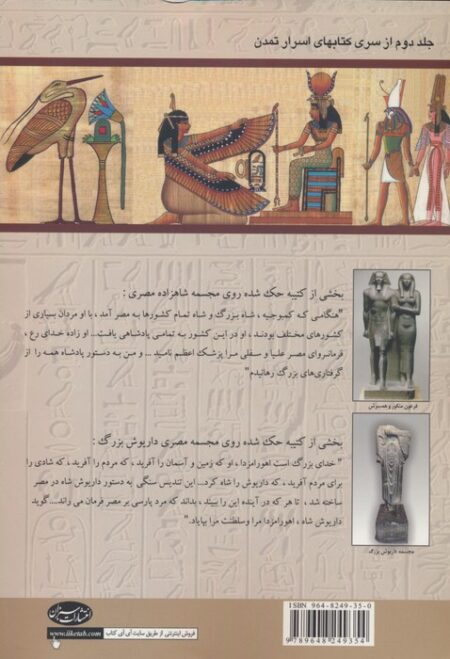 جلد دوم از سری کتابهای اسرار تمدن
بخشی از کتیبه حک شده روی مجسمه شاهزاده مصری :
"هنگامی که کمبوجیه ، شاه بزرگ و شاه تمام کشورها به مصر آمد ، با او مردان بسیاری از
کشورهای مختلف بودند ، او در این کشور به تمامی پادشاهی یافت... او زاده خدای رع ،
فرمانروای مصر علیا و سفلی مرا پزشک اعظم نامید ... و من به دستور پادشاه همه را از
گرفتاری‌های بزرگ رهانیدم"
فرعون منکور و همسرش
بخشی از کتیبه حک شده روی مجسمه مصری داریوش بزرگ :
" خدای بزرگ است اهورامزدا ، او که زمین و آسمان را آفرید ، که مردم را آفرید ، که شادی را
برای مردم آفرید ، که داریوش را شاه کرد... این تندیس سنگی به دستور داریوش شاه در مصر
ساخته شد ، تا هر که در آینده این را ببیند ، بداند که مرد پارسی بر مصر فرمان می راند....گوید
داریوش شاه ، اهورامزدا مرا و سلطنت مرا بپایاد."
مجسمه داریوش بزرگ
ISBN 964-8249-35-0
9 789648 249354
انتشارات سبزان
فروش اینترنتی از طریق سایت آی آی کتاب
www.iiketab.com